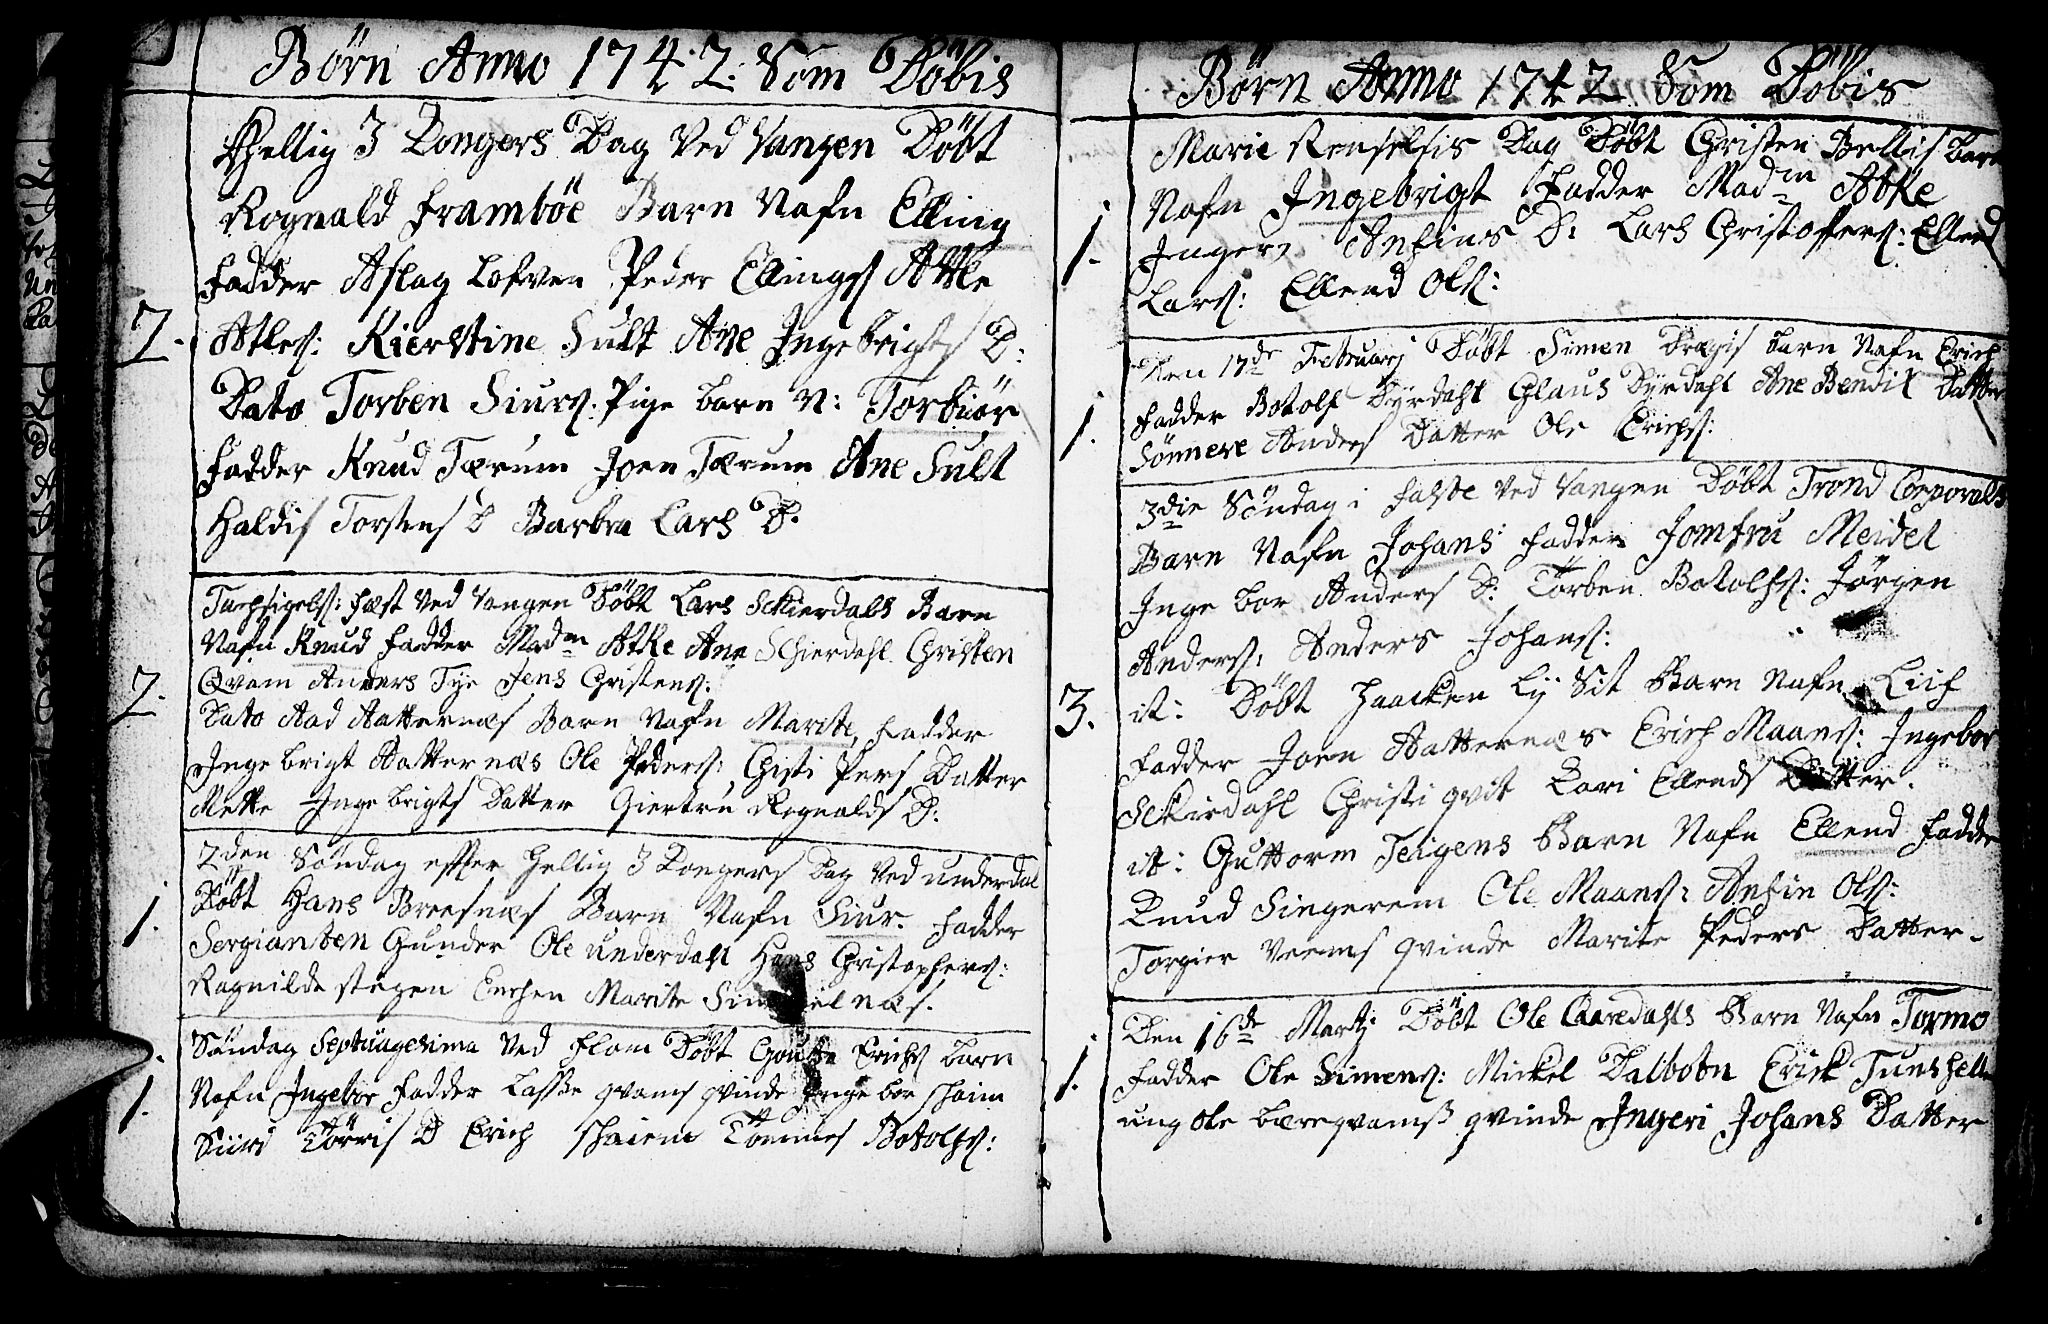 Börn Anno 1742: Som Döbis
Hellig 3 Kongers Dag Ved Vangen Döbt
Rognald Framböe Barn Nafn Elling
Fadder Aslag Lofven Peder Ellings Atle
2. Atles: Kierstine Hult Ane Ingebrigts D:
Dato Torben Siurs: Pige barn N: Torbiör
Fadder Knud Tærum Joen Tærum Ane Hult
Haldis Torstens D Barbra Lars D.
fæst Ved Vangen Döbt Lars Schierdals Barn
Nafn Knud Fadder Madm Atke Ane Schierdahl Christen
Qvam Anders Tye Jens Christens:
2. Dato Aad Aatternæs Barn Nafn Marite, Fadder
Ingebrigt Aatternæs Ole Peders: Christi Pers Datter
Mette Ingebrigts Datter Giertru Rognalds D:
2den Söndag efter Hellig 3 Kongers Dag Ved underdal
1. Döbt Hans Breesnæs Barn Nafn Siur. Fadder
Sergianten Gunder Ole underdahl Hans Christophers:
Ragnilde stegen Marite
Söndag Septuagesima Ved Flam Döbt Goutte Erichs barn
1. Nafn Ingebor Fadder Lasse qvams qvinde Ingebor
Siiri Törris D Erich Tommes Botolfs:
Börn Anno 1742 Som Döbis
Marie Renselsis Dag Döbt Christen Bellis barn
Nafn Ingebrigt Fadder Madm Atke
1. Inger Anfins D: Lars Christoffers: Ellend
Lars: Ellend Ols:
Den 17de Februarj Döbt Simen barn Nafn Erich
1. Fadder Botolf Dyrdahl Claus Dyrdahl Ane Bendix Datter
Sönneve Anders Datter Ole Erichs:
3die Söndag i Faste Ved Vangen Döbt Trond Corporals
Barn Nafn Johans Fadder Jomfru Meidel
Ingebor Anders D: Torben Botolfs: Jörgen
Anders: Anders Johans:
3. it: Döbt Haacken Ly Sit Barn Nafn Liif
Fadder Joen Aatternæs Erich Maans: Ingebor
Schirdahl Christi qvit Kari Ellends Datter.
it: Guttorm Teigens Barn Nafn Ellend Fadder
Knud Singerem Ole Maans: Anfin Ols:
Torgier Veems qvinde Marite Peders Datter.
Den 16de Martj Döbt Ole Aaredahls Barn Nafn Tormo
1. Fadder Ole Simens: Mickel Dalbotn Erick Tunshelle
ung Ole bæreqvamß qvinde Ingeri Johans Datter